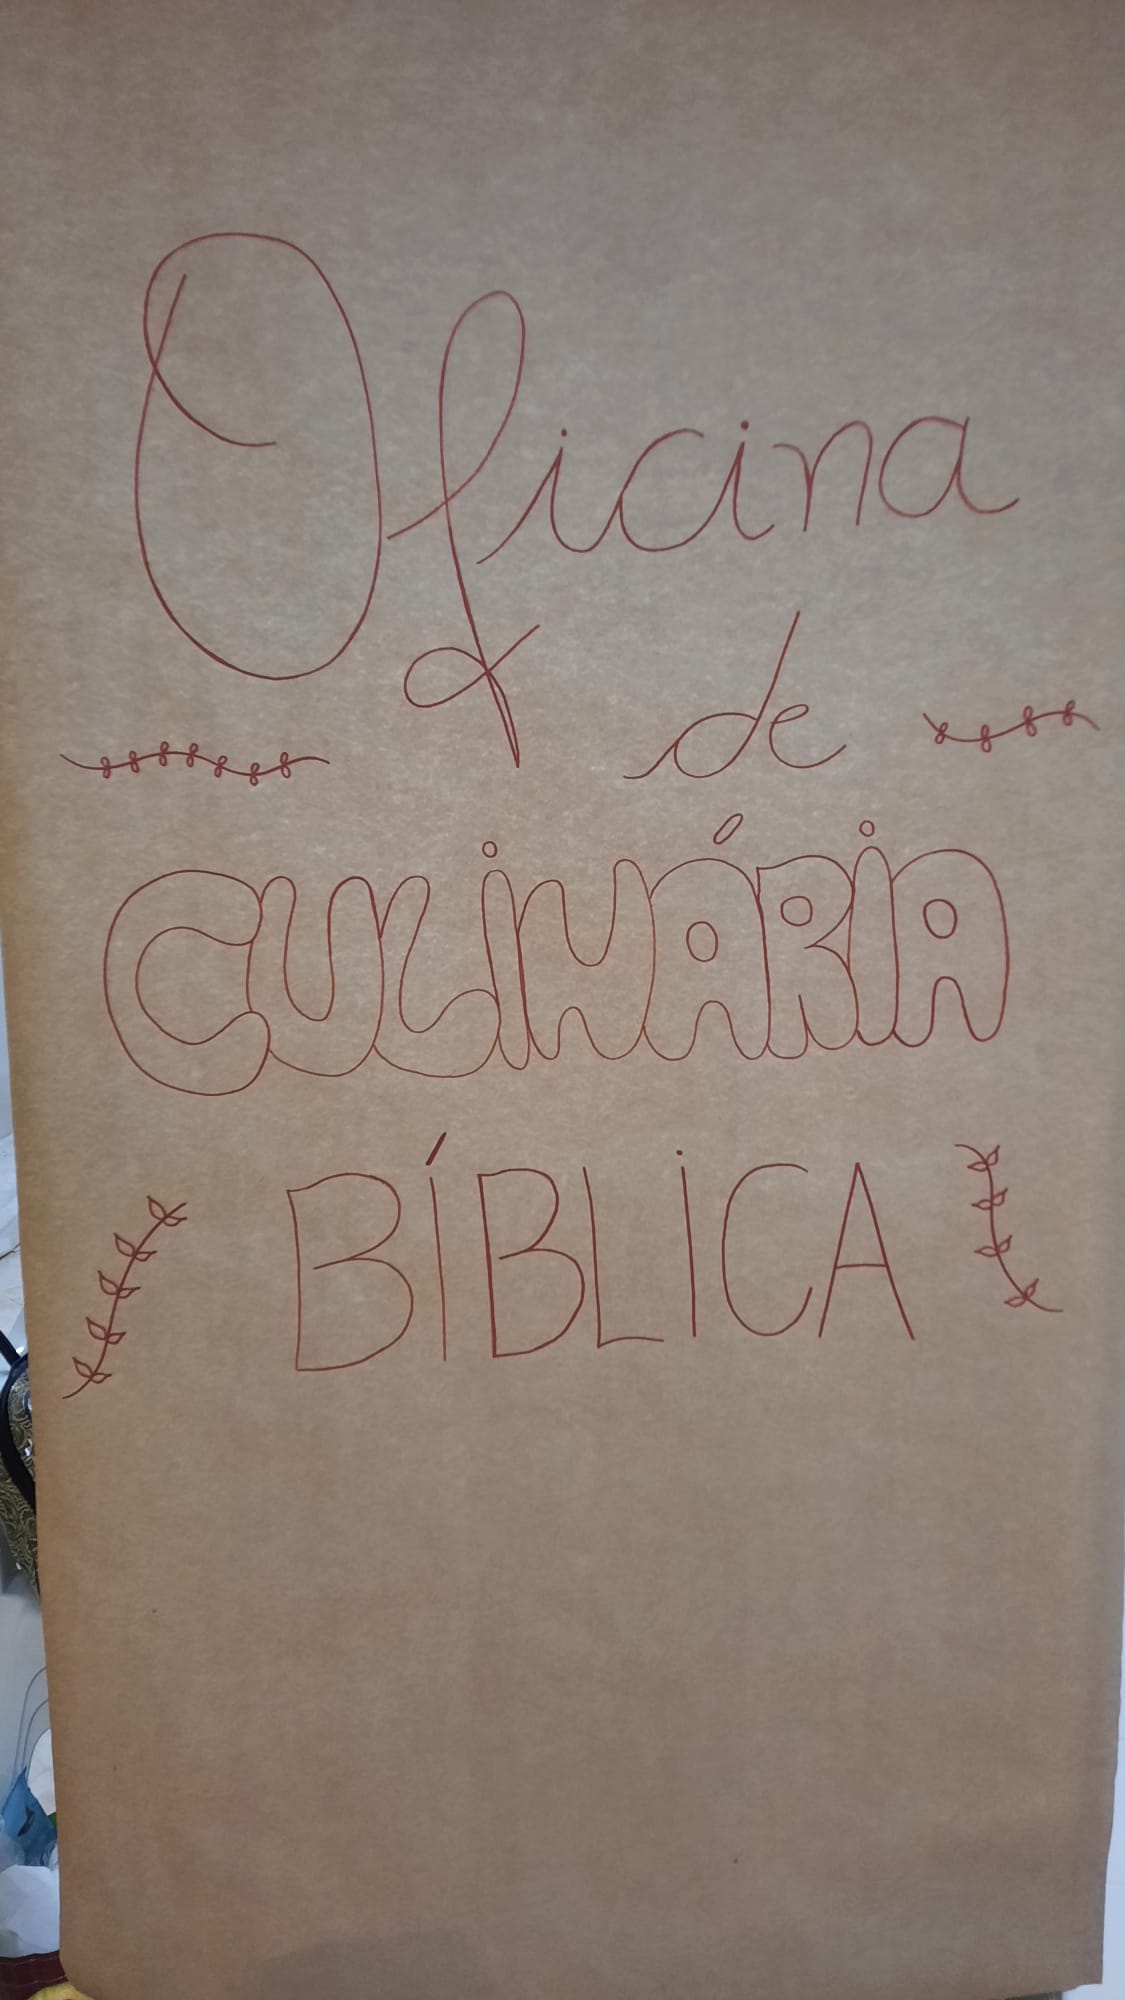 Oficina
de
CULINÁRIA
BÍBLICA